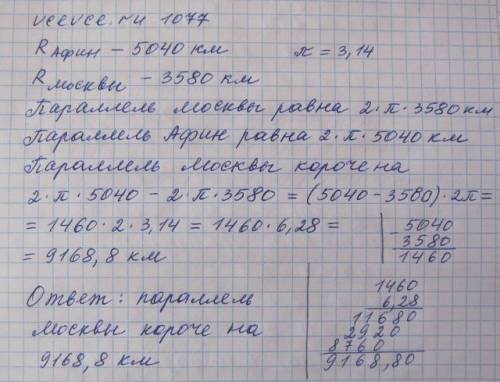 vcevce.ru 1077
R Афин – 5040 км π = 3,14
R Москвы – 3580 км
Параллель Москвы равна 2·π·3580 км
Параллель Афин равна 2·π·5040 км
Параллель Москвы короче на
2·π·5040 – 2·π·3580 = (5040–3580)·2π=
= 1460·2·3,14 = 1460·6,28 =
= 9168,8 км
– 5040
3580
1460
Ответ: параллель
Москвы короче на
9168,8 км
1460
6,28
11680
2920
8760
9168,80